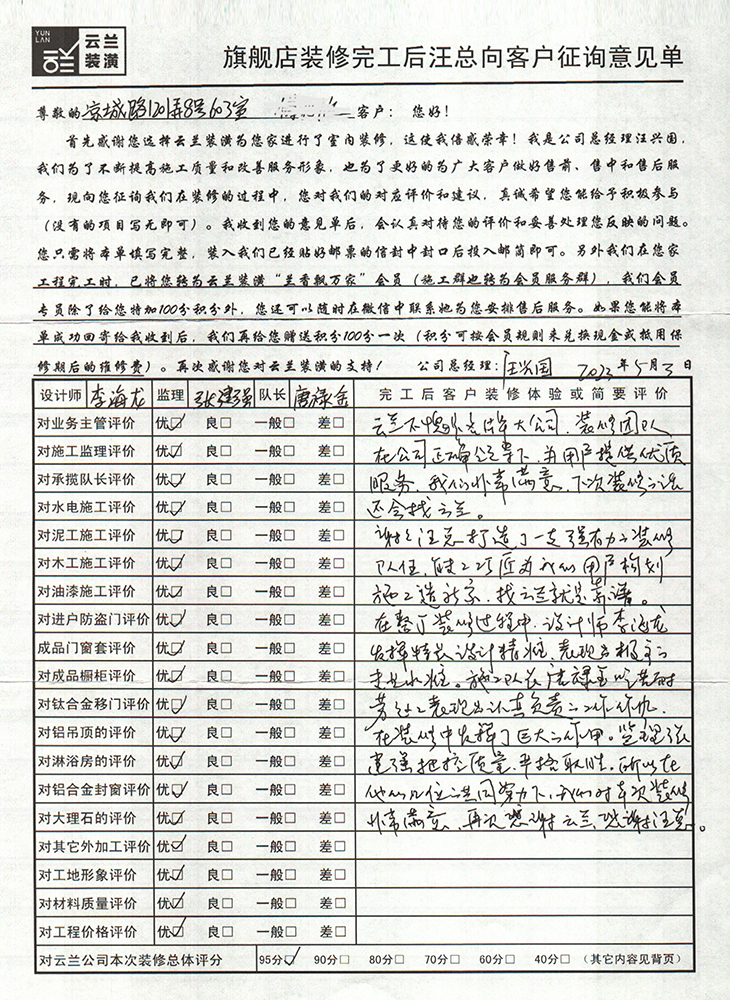 YUN
LAN
云兰
装潢
旗舰店装修完工后汪总向客户征询意见单
尊敬的京城路1201弄8号603室 客户： 您好！
首先感谢您选择云兰装潢为您家进行了室内装修，这使我倍感荣幸！我是公司总经理汪兴国，
我们为了不断提高施工质量和改善服务形象，也为了更好的为广大客户做好售前、售中和售后服
务，现向您征询我们在装修的过程中，您对我们的对应评价和建议，真诚希望您能给予积极参与
（没有的项目写无即可）。我收到您的意见单后，会认真对待您的评价和妥善处理您反映的问题。
您只需将本单填写完整，装入我们已经贴好邮票的信封中封口后投入邮筒即可。另外我们在您家
工程完工时，已将您转为云兰装潢“兰香飘万家”会员（施工群也转为会员服务群），我们会员
专员除了给您特加100分积分外，您还可以随时在微信中联系她为您安排售后服务。如果您能将本
单成功回寄给我收到后，我们再给您赠送积分100分一次（积分可按会员规则来兑换现金或抵用保
修期后的维修费）。再次感谢您对云兰装潢的支持！ 公司总经理：汪兴国 2023年5月3日
设计师 李海龙 监理 张建强 队长 唐禄金 完工后客户装修体验或简要评价
对业务主管评价 优 良 一般 差 云兰不愧是 大公司，装修团队
对施工监理评价 优 良 一般 差 在公司正确领导下，并用户提供优质
对承揽队长评价 优 良 一般 差 服务，我们非常满意，下次装修的话
对水电施工评价 优 良 一般 差 还会找云兰。
对泥工施工评价 优 良 一般 差 谢谢汪总打造了一支强有力的装修
对木工施工评价 优 良 一般 差 队伍，能工巧匠为我们用户构划
对油漆施工评价 优 良 一般 差 施工造新家，找云兰就是靠谱。
对进户防盗门评价 优 良 一般 差 在整个装修过程中，设计师李海龙
成品门窗套评价 优 良 一般 差 发挥特长设计精准，表现出极高的
对成品橱柜评价 优 良 一般 差 水准。施工队长唐禄金吃苦耐
对钛合金移门评价 优 良 一般 差 劳 表现出认真负责的工作作风，
对铝吊顶的评价 优 良 一般 差 在装修中发挥了巨大的作用。监理张
对淋浴房的评价 优 良 一般 差 建强把控质量， 所以在
对铝合金封窗评价 优 良 一般 差 他们几位的共同努力下，我们对本次装修
对大理石的评价 优 良 一般 差 非常满意，再次感谢云兰，感谢汪总。
对其它外加工评价 优 良 一般 差
对工地形象评价 优 良 一般 差
对材料质量评价 优 良 一般 差
对工程价格评价 优 良 一般 差
对云兰公司本次装修总体评分 95分 90分 80分 70分 60分 40分 （其它内容见背页）